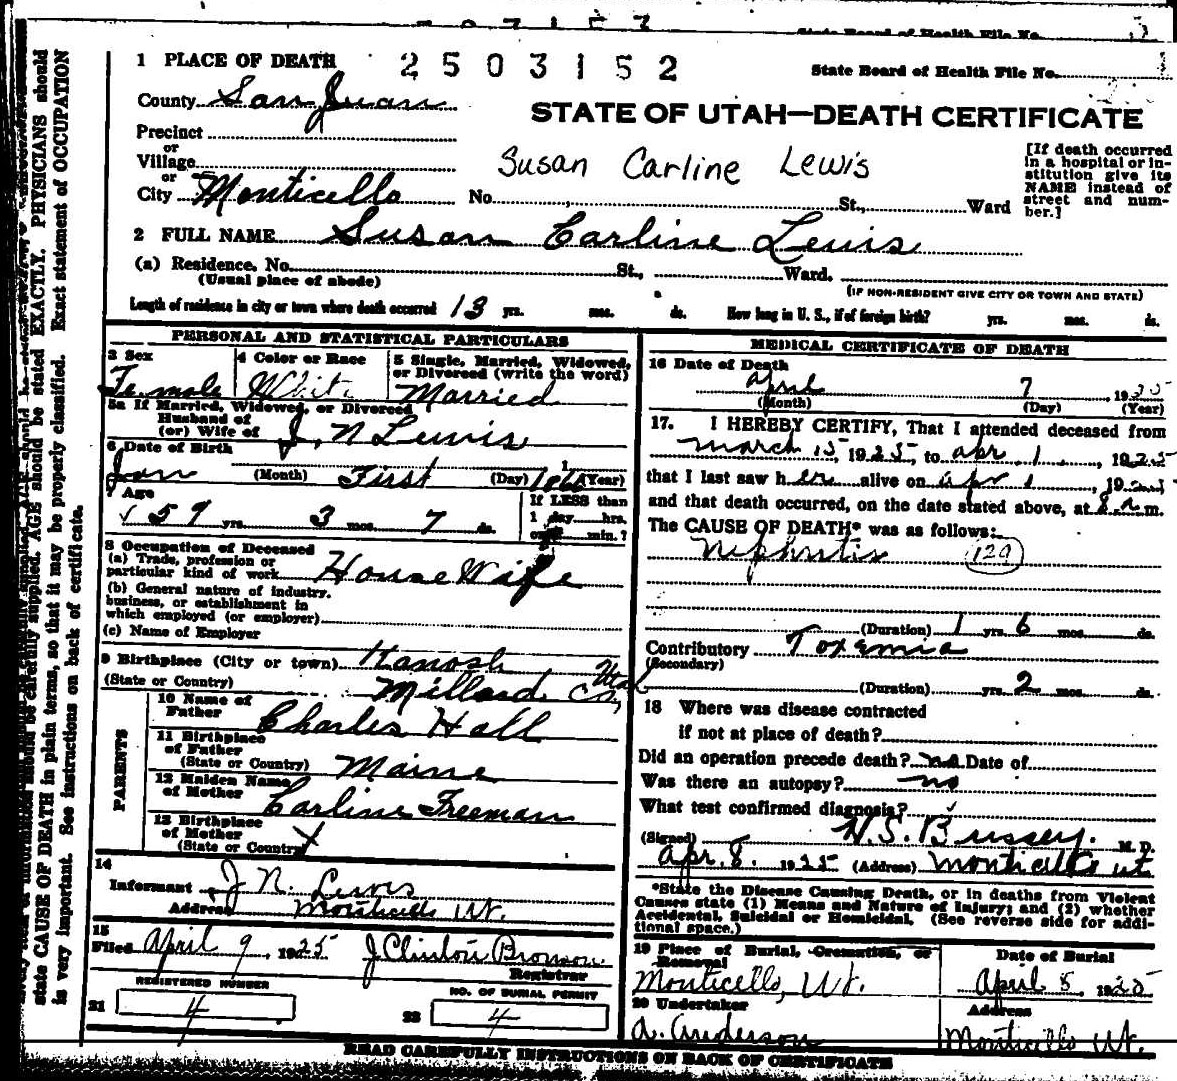 State Board of Health File No.
1 PLACE OF DEATH 2503152 State Board of Health File No.
County San Juan
STATE OF UTAH—DEATH CERTIFICATE
Precinct
or
Village
or
City Monticello No. St., Ward
Susan Carline Lewis
[If death occurred in a hospital or institution give its NAME instead of street and number.]
2 FULL NAME Susan Carline Lewis
(a) Residence. No. St., Ward.
(Usual place of abode) (IF NON-RESIDENT GIVE CITY OR TOWN AND STATE)
Length of residence in city or town where death occurred 13 yrs. mos. ds. How long in U. S., if of foreign birth? yrs. mos. ds.
PERSONAL AND STATISTICAL PARTICULARS
3 Sex 4 Color or Race 5 Single, Married, Widowed, or Divorced (write the word)
Female White Married
5a If Married, Widowed, or Divorced
Husband of
(or) Wife of J. N Lewis
6 Date of Birth
Jan (Month) First (Day) (Year)
7 Age
59 yrs. 3 mos. 7 ds.
If LESS than
1 day hrs.
or min.?
8 Occupation of Deceased
(a) Trade, profession or
particular kind of work House Wife
(b) General nature of industry,
business, or establishment in
which employed (or employer)
(c) Name of Employer
9 Birthplace (City or town) Kanosh
(State or Country) Millard Co, Utah
PARENTS
10 Name of Father Charles Hall
11 Birthplace of Father
(State or Country) Maine
12 Maiden Name of Mother Carline Freeman
13 Birthplace of Mother
(State or Country) X
14
Informant J N. Lewis
Address Monticello Ut.
15
Filed April 9, 1925 J Clinton Bronson
Registrar
REGISTERED NUMBER NO. OF BURIAL PERMIT
21 4 22 4
MEDICAL CERTIFICATE OF DEATH
16 Date of Death
April 7, 1925
(Month) (Day) (Year)
17. I HEREBY CERTIFY, That I attended deceased from
march 15, 1925, to apr 1, 1925
that I last saw her alive on apr 1, 1925
and that death occurred, on the date stated above, at 8 a m.
The CAUSE OF DEATH* was as follows:
Nephritis 129
(Duration) 1 yrs. 6 mos. ds.
Contributory Toxemia
(Secondary)
(Duration) yrs. 2 mos. ds.
18 Where was disease contracted
if not at place of death?
Did an operation precede death? no Date of
Was there an autopsy? no
What test confirmed diagnosis?
(Signed) W. S. Bussey. M. D.
apr. 8. 1925 (Address) Monticello ut
*State the Disease Causing Death, or in deaths from Violent
Causes state (1) Means and Nature of Injury; and (2) whether
Accidental, Suicidal or Homicidal. (See reverse side for addi-
tional space.)
19 Place of Burial, Cremation, or Removal Date of Burial
Monticello, Ut. April 8, 1925
20 Undertaker Address
A. Anderson Monticello Ut.
READ CAREFULLY INSTRUCTIONS ON BACK OF CERTIFICATE
should be stated EXACTLY. PHYSICIANS should
state CAUSE OF DEATH in plain terms, so that it may be properly classified. Exact statement of OCCUPATION
is very important. See instructions on back of certificate.